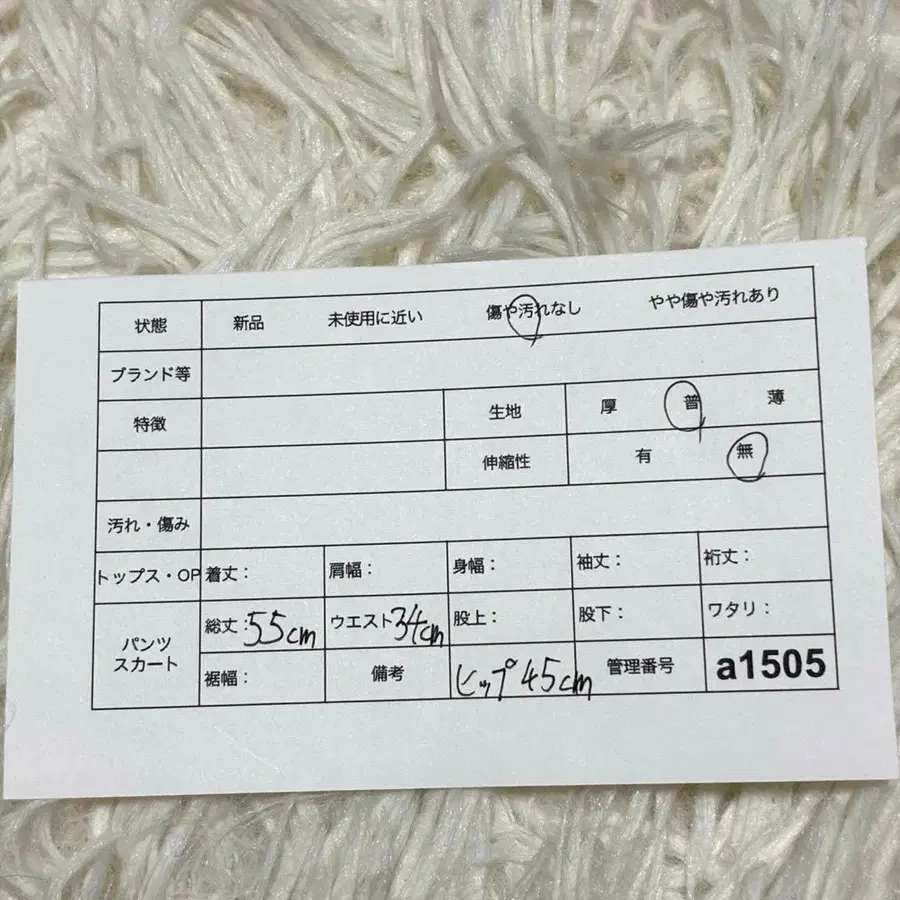 状態 新品 未使用に近い 傷や汚れなし やや傷や汚れあり
ブランド等
特徴 生地 厚 普 薄
伸縮性 有 無
汚れ・傷み
トップス・OP 着丈： 肩幅： 身幅： 袖丈： 裄丈：
パンツ
スカート
総丈:55cm ウエスト34cm 股上： 股下： ワタリ：
裾幅： 備考 ヒップ45cm 管理番号 a1505